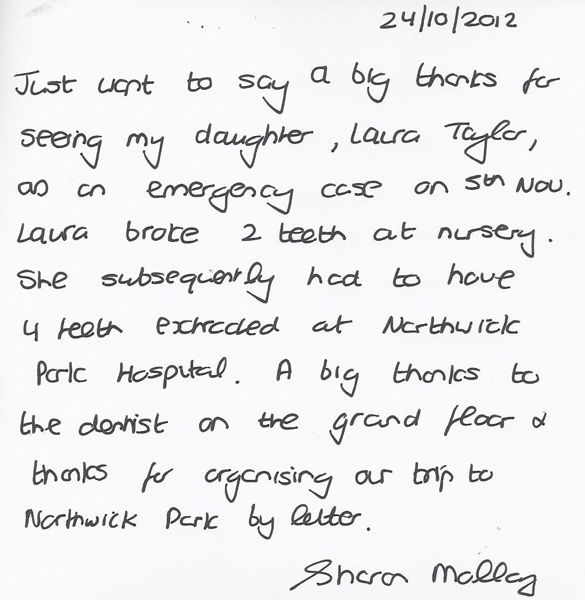 24/10/2012
Just want to say a big thanks for
seeing my daughter, Laura Taylor,
as an emergency case on 5th Nov.
Laura broke 2 teeth at nursery.
She subsequently had to have
4 teeth extracted at Northwick
Park Hospital. A big thanks to
the dentist on the grand floor &
thanks for organising our trip to
Northwick Park by letter.
Sharon Molloy